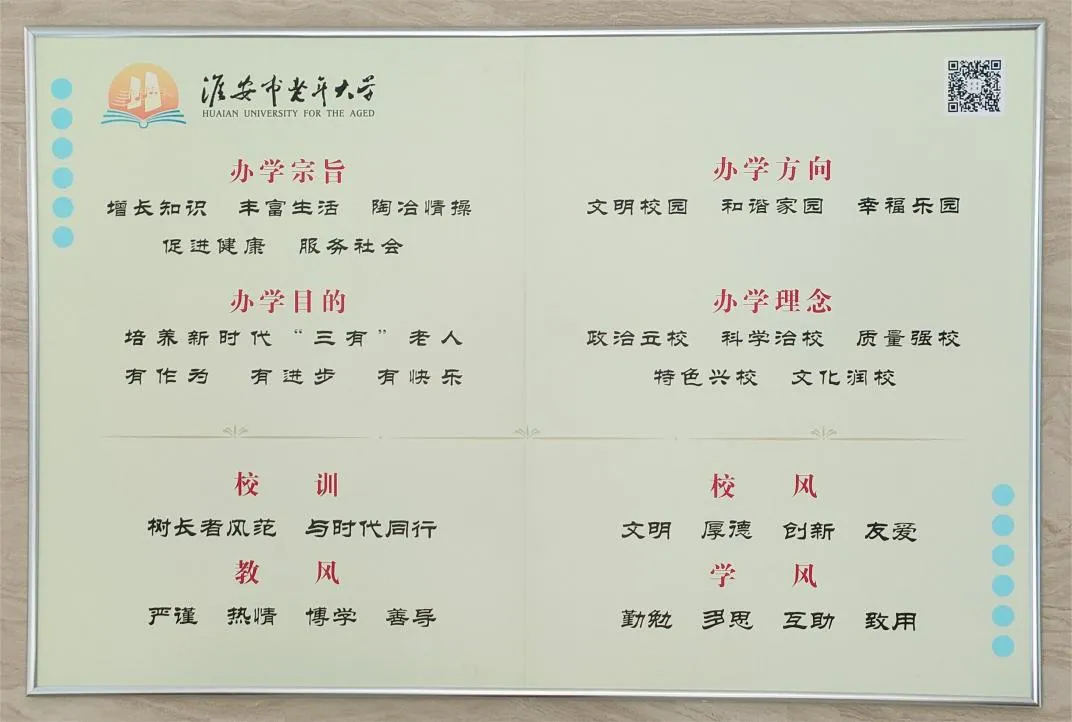 淮安市老年大学
HUAIAN UNIVERSITY FOR THE AGED
办学宗旨
增长知识 丰富生活 陶冶情操
促进健康 服务社会
办学方向
文明校园 和谐家园 幸福乐园
办学目的
培养新时代“三有”老人
有作为 有进步 有快乐
办学理念
政治立校 科学治校 质量强校
特色兴校 文化润校
校 训
树长者风范 与时代同行
校 风
文明 厚德 创新 友爱
教 风
严谨 热情 博学 善导
学 风
勤勉 多思 互助 致用